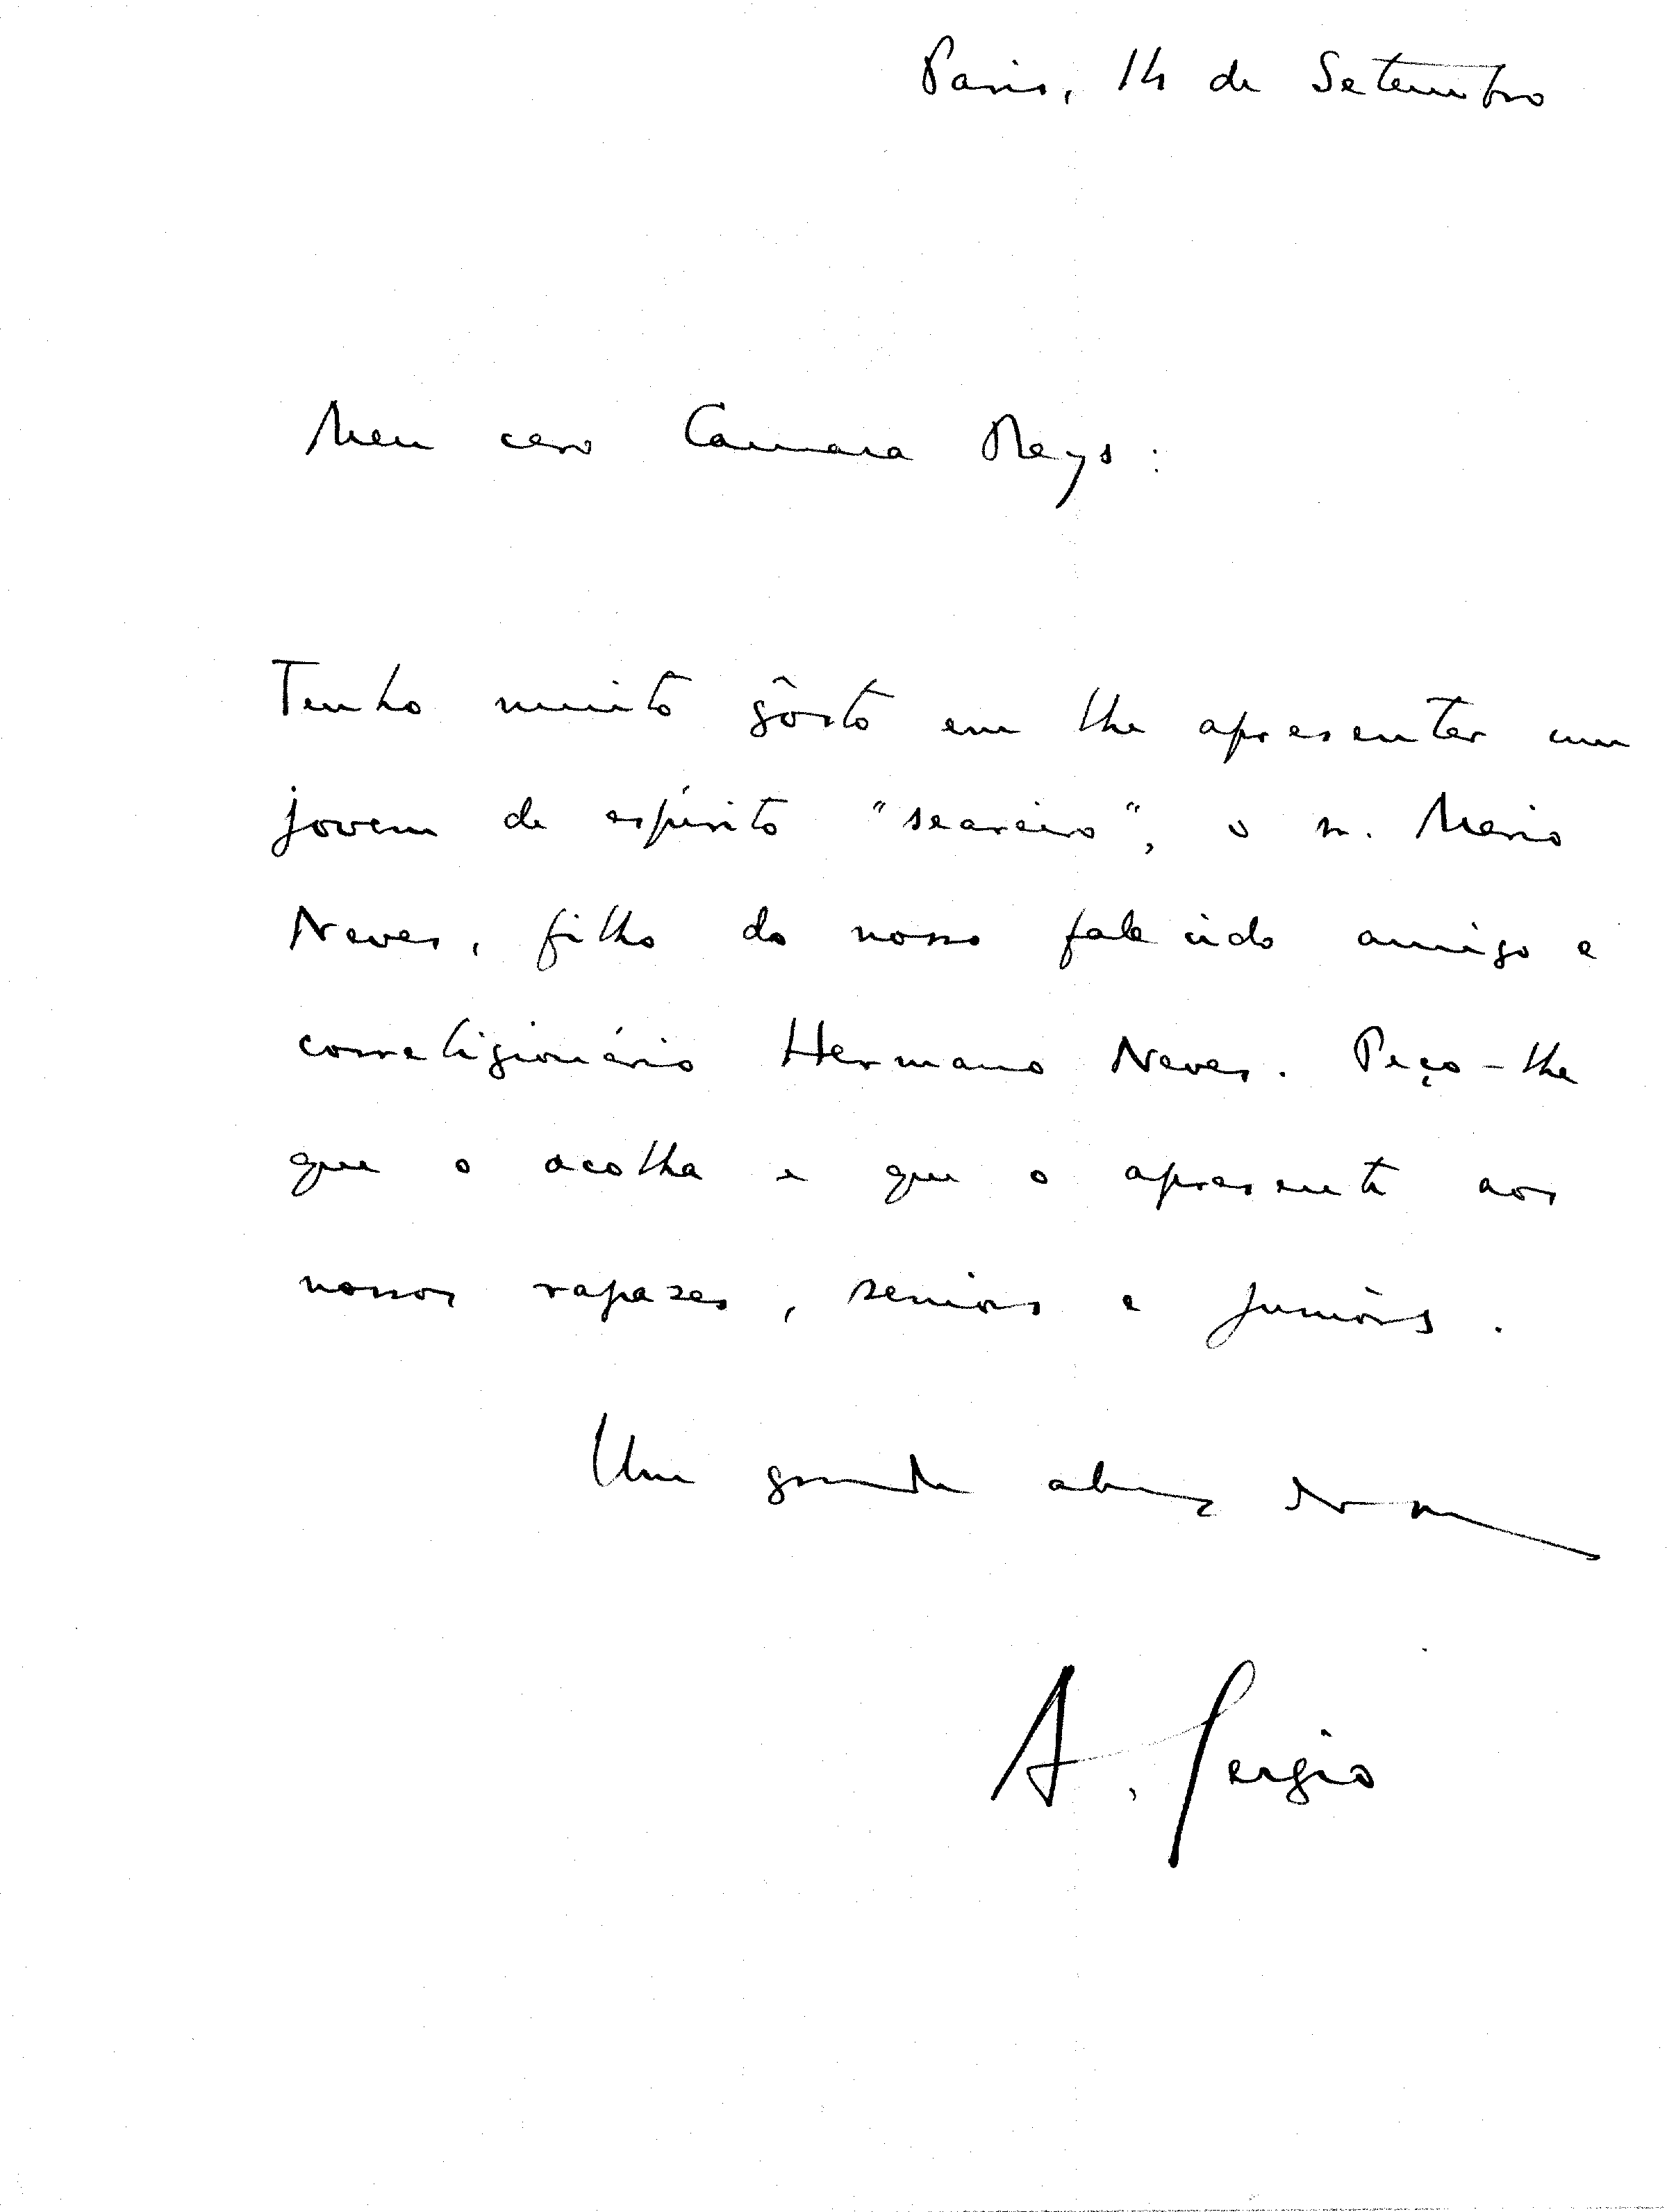 Paris, 14 de Setembro
Meu caro Camara Reys:
Tenho muito gôsto em lhe apresentar um
jovem de espírito "seareiro", o sr. Mario
Neves, filho do nosso falecido amigo e
correligionário Hermano Neves. Peço-lhe
que o acolha e que o apresente aos
nossos rapazes, seniors e juniors.
Um grande abraço do
A. Sergio